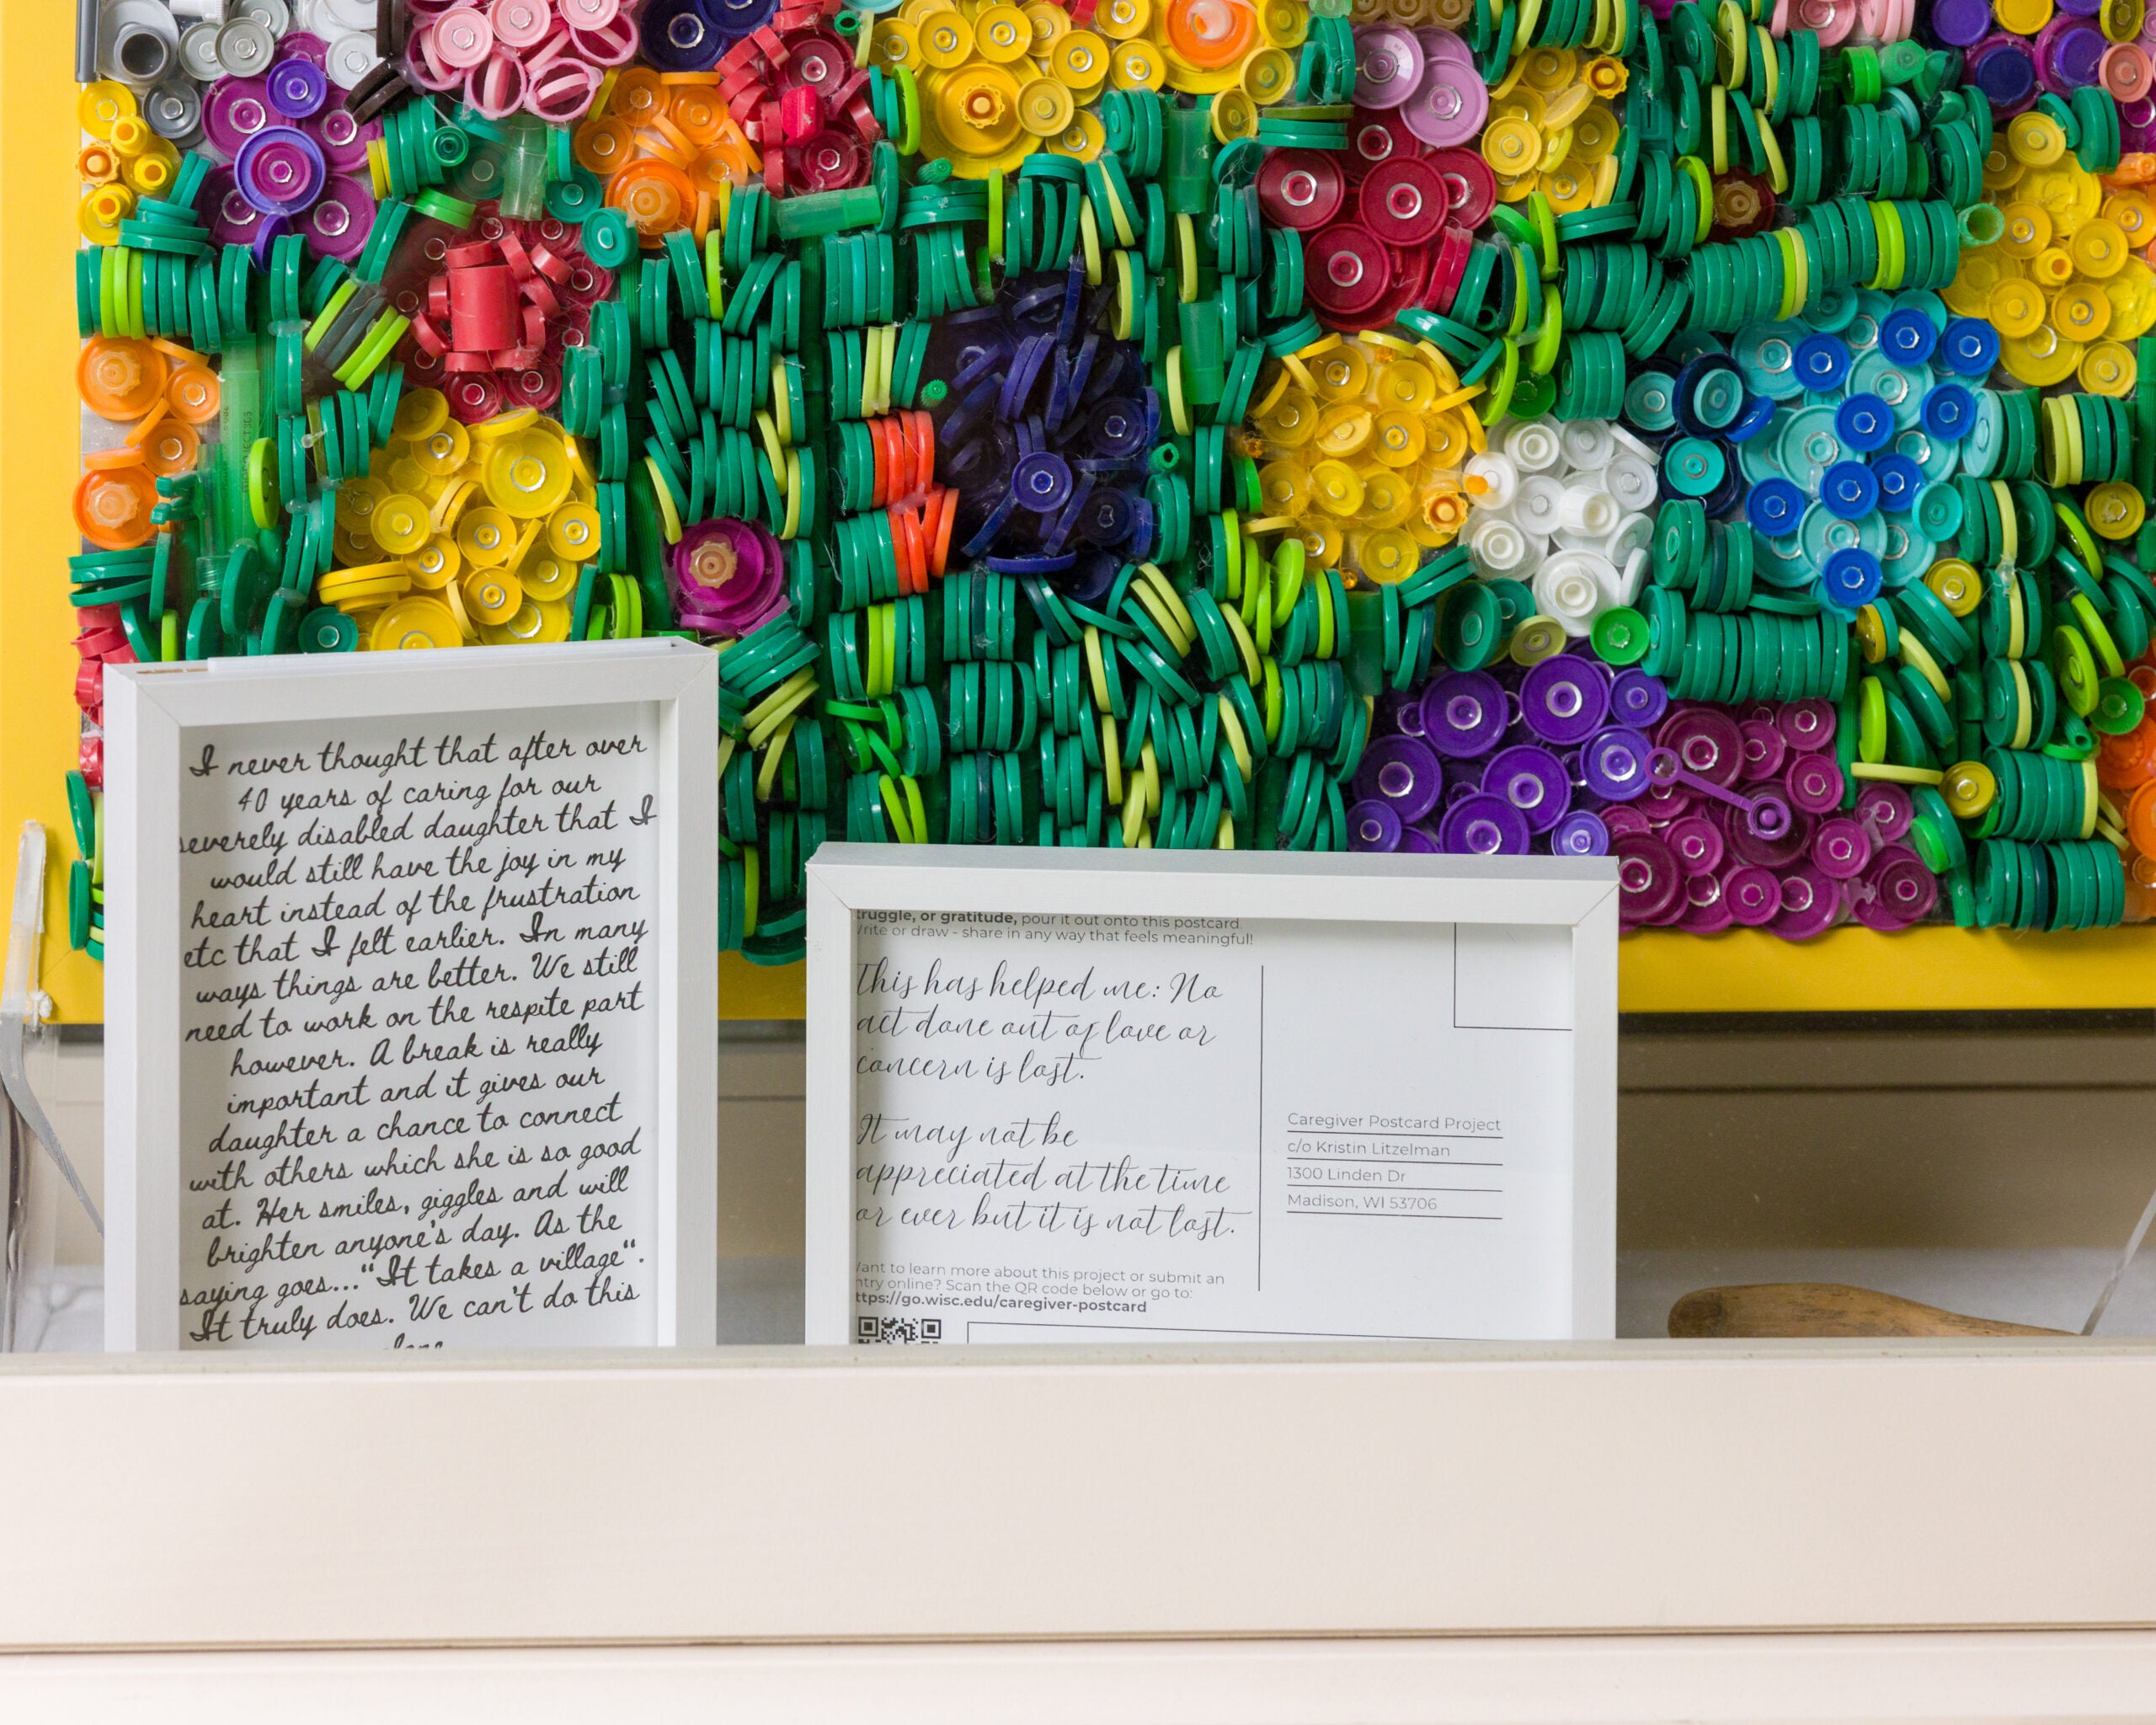 I never thought that after over
40 years of caring for our
severely disabled daughter that I
would still have the joy in my
heart instead of the frustration
etc that I felt earlier. In many
ways things are better. We still
need to work on the respite part
however. A break is really
important and it gives our
daughter a chance to connect
with others which she is so good
at. Her smiles, giggles and will
brighten anyone's day. As the
saying goes..."It takes a village".
It truly does. We can't do this
truggle, or gratitude, pour it out onto this postcard.
rite or draw - share in any way that feels meaningful!
This has helped me: No
act done out of love or
concern is lost.
It may not be
appreciated at the time
or ever but it is not lost.
ant to learn more about this project or submit an
ntry online? Scan the QR code below or go to:
ttps://go.wisc.edu/caregiver-postcard
Caregiver Postcard Project
c/o Kristin Litzelman
1300 Linden Dr
Madison, WI 53706